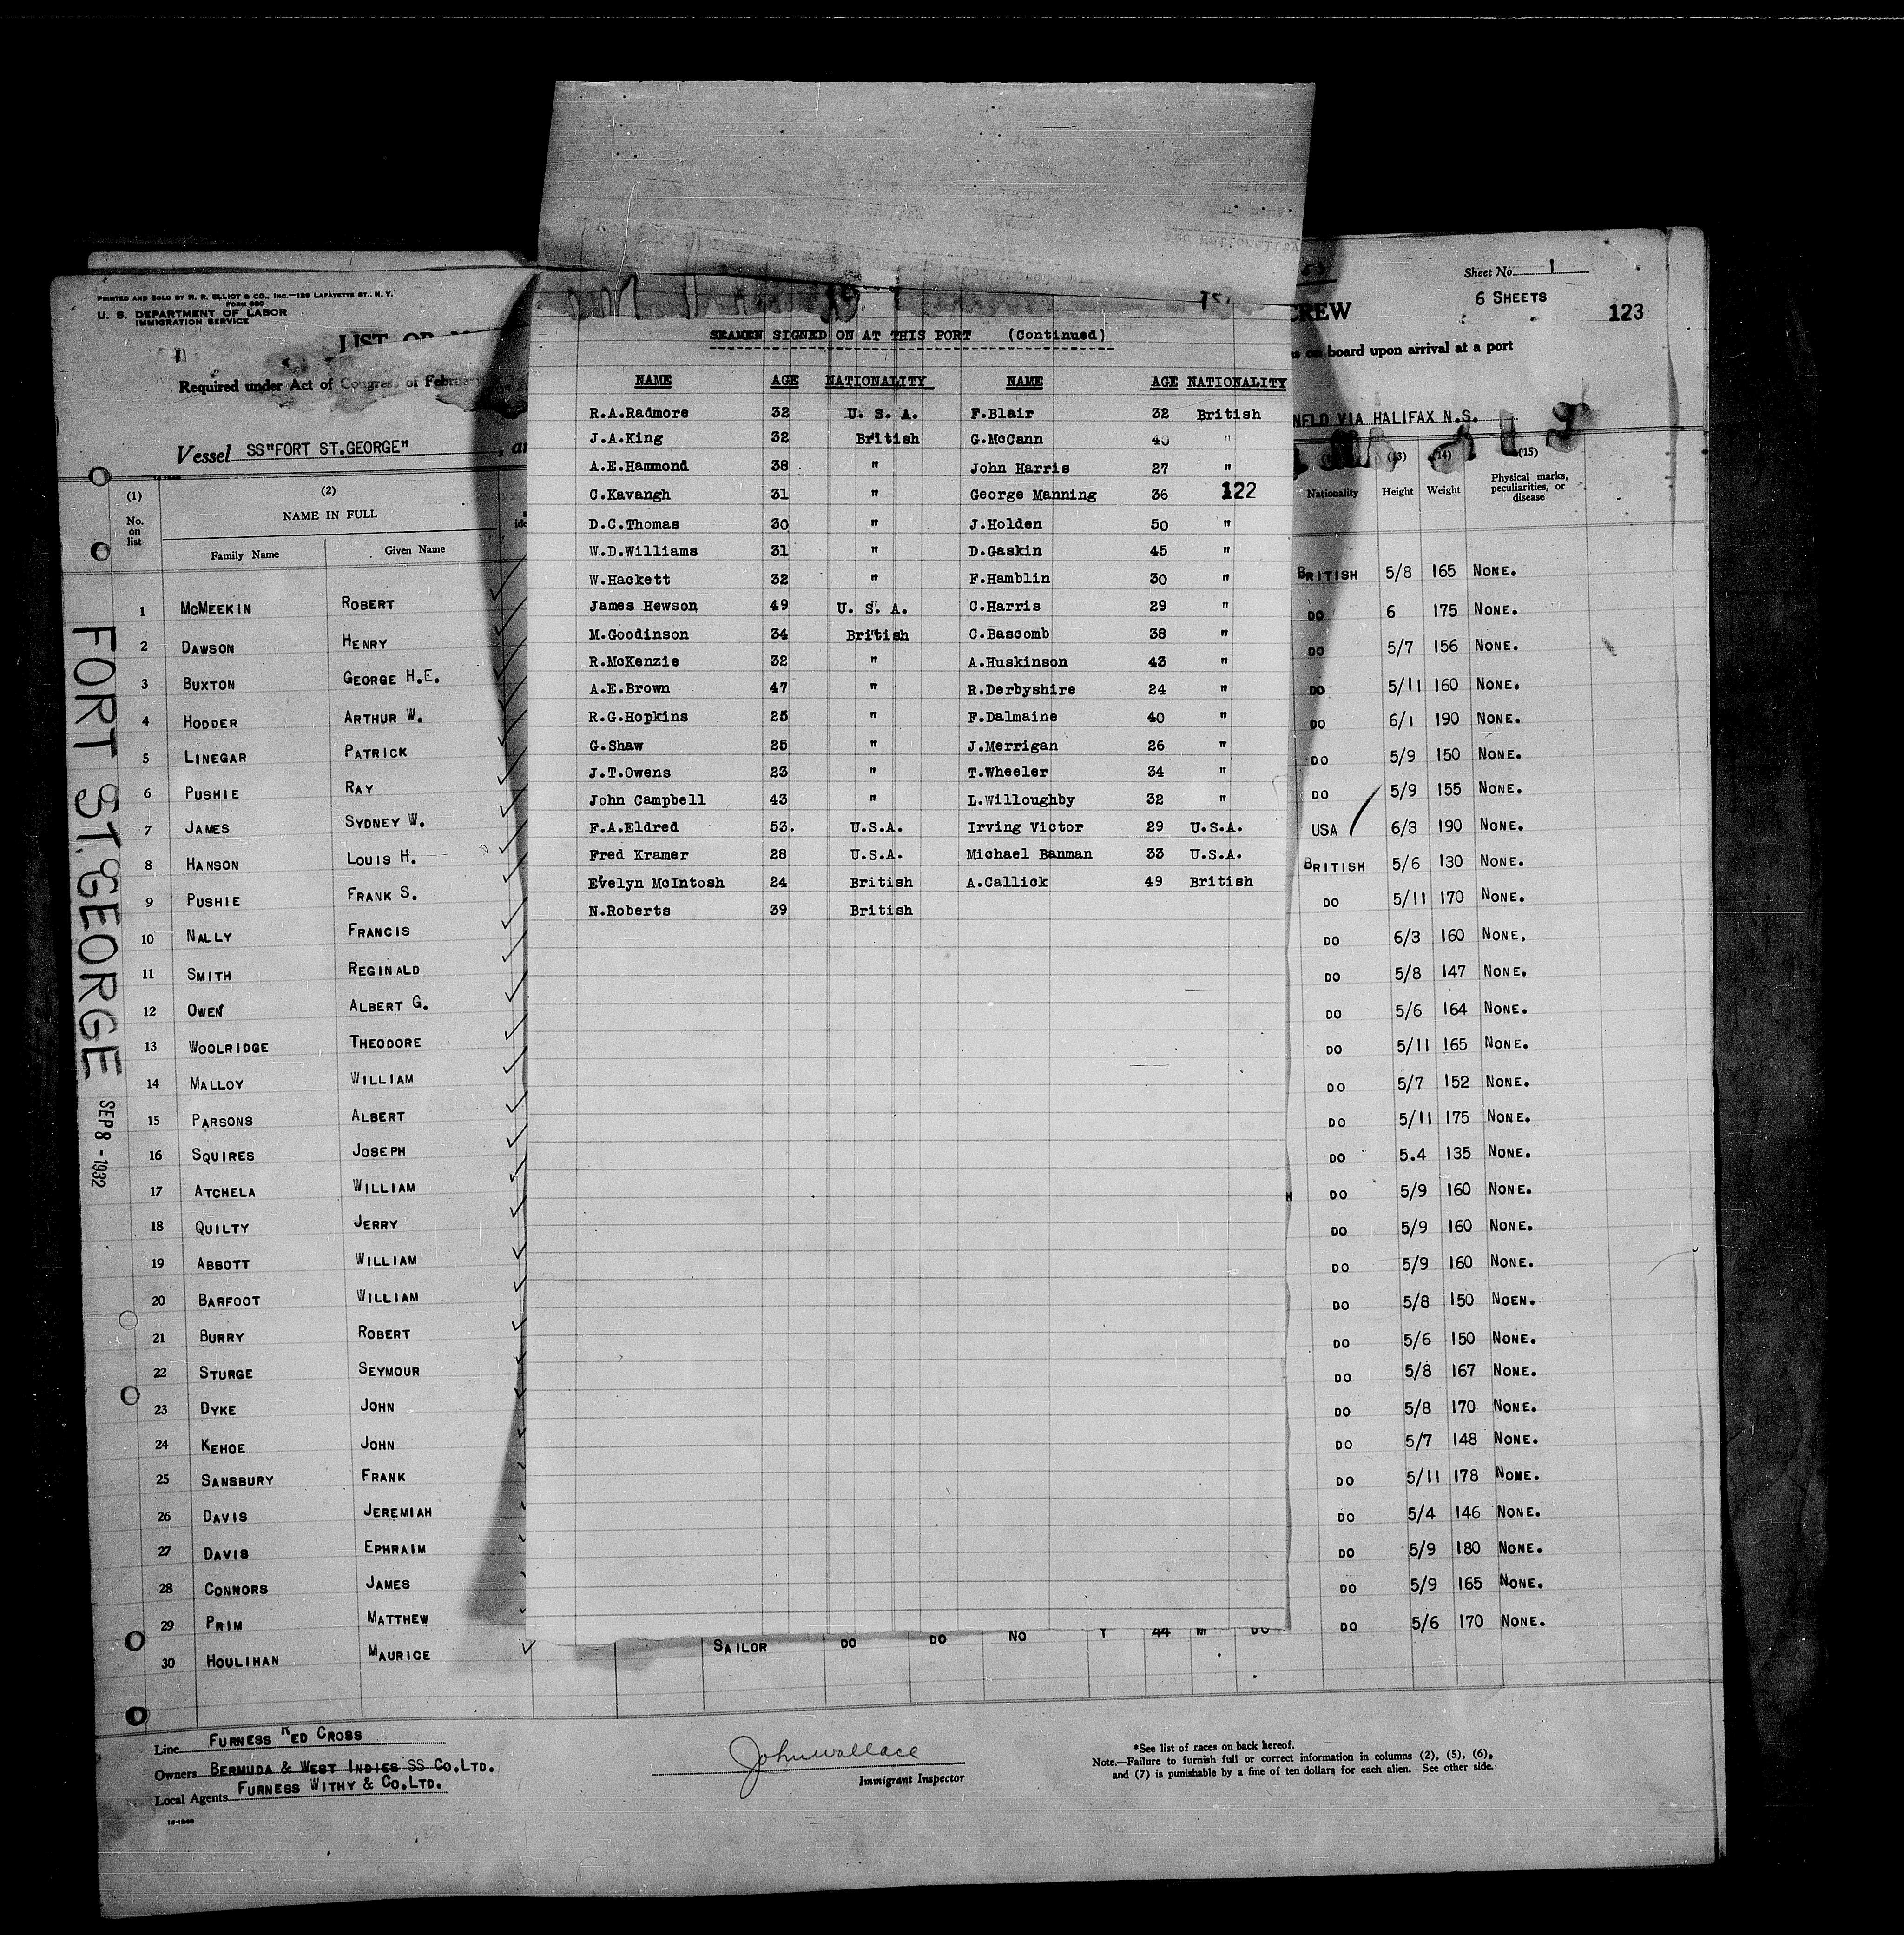 PRINTED AND SOLD BY H. R. ELLIOT & CO., INC.—129 LAFAYETTE ST., N. Y.
FORM 680
U. S. DEPARTMENT OF LABOR
IMMIGRATION SERVICE
Sheet No. 1
6 SHEETS
123
LIST OR
CREW
Required under Act of Congress of February
on board upon arrival at a port
Vessel SS"FORT ST.GEORGE"
NFLD VIA HALIFAX N.S.
FORT ST. GEORGE
SEP 8 - 1932
(1) (2)
No. on list
NAME IN FULL
Family Name Given Name
1 MCMEEKIN ROBERT
2 DAWSON HENRY
3 BUXTON GEORGE H.E.
4 HODDER ARTHUR W.
5 LINEGAR PATRICK
6 PUSHIE RAY
7 JAMES SYDNEY W.
8 HANSON LOUIS H.
9 PUSHIE FRANK S.
10 NALLY FRANCIS
11 SMITH REGINALD
12 OWEN ALBERT G.
13 WOOLRIDGE THEODORE
14 MALLOY WILLIAM
15 PARSONS ALBERT
16 SQUIRES JOSEPH
17 ATCHELA WILLIAM
18 QUILTY JERRY
19 ABBOTT WILLIAM
20 BARFOOT WILLIAM
21 BURRY ROBERT
22 STURGE SEYMOUR
23 DYKE JOHN
24 KEHOE JOHN
25 SANSBURY FRANK
26 DAVIS JEREMIAH
27 DAVIS EPHRAIM
28 CONNORS JAMES
29 PRIM MATTHEW
30 HOULIHAN MAURICE
SEAMEN SIGNED ON AT THIS PORT (Continued)
NAME AGE NATIONALITY NAME AGE NATIONALITY
R.A.Radmore 32 U. S. A. F.Blair 32 British
J.A.King 32 British G.McCann "
A.E.Hammond 38 " John Harris 27 "
C.Kavangh 31 " George Manning 36 122
D.C.Thomas 30 " J.Holden 50 "
W.D.Williams 31 " D.Gaskin 45 "
W.Hackett 32 " F.Hamblin 30 "
James Hewson 49 U. S. A. C.Harris 29 "
M.Goodinson 34 British C.Bascomb 38 "
R.McKenzie 32 " A.Huskinson 43 "
A.E.Brown 47 " R.Derbyshire 24 "
R.G.Hopkins 25 " F.Dalmaine 40 "
G.Shaw 25 " J.Merrigan 26 "
J.T.Owens 23 " T.Wheeler 34 "
John Campbell 43 " L.Willoughby 32 "
F.A.Eldred 53. U.S.A. Irving Victor 29 U.S.A.
Fred Kramer 28 U.S.A. Michael Banman 33 U.S.A.
Evelyn McIntosh 24 British A.Callick 49 British
N.Roberts 39 British
(13) (14) (15)
Nationality Height Weight Physical marks, peculiarities, or disease
BRITISH 5/8 165 NONE.
DO 6 175 NONE.
DO 5/7 156 NONE.
DO 5/11 160 NONE.
DO 6/1 190 NONE.
DO 5/9 150 NONE.
DO 5/9 155 NONE.
USA 6/3 190 NONE.
BRITISH 5/6 130 NONE.
DO 5/11 170 NONE.
DO 6/3 160 NONE,
DO 5/8 147 NONE.
DO 5/6 164 NONE.
DO 5/11 165 NONE.
DO 5/7 152 NONE.
DO 5/11 175 NONE.
DO 5.4 135 NONE.
DO 5/9 160 NONE.
DO 5/9 160 NONE.
DO 5/9 160 NONE.
DO 5/8 150 NOEN.
DO 5/6 150 NONE.
DO 5/8 167 NONE.
DO 5/8 170 NONE.
DO 5/7 148 NONE.
DO 5/11 178 NONE.
DO 5/4 146 NONE.
DO 5/9 180 NONE.
DO 5/9 165 NONE.
DO 5/6 170 NONE.
SAILOR DO DO NO Y 44 M DO
Line FURNESS RED CROSS
Owners BERMUDA & WEST INDIES SS CO.LTD.
Local Agents FURNESS WITHY & CO.LTD.
John Wallace
Immigrant Inspector
*See list of races on back hereof.
Note.—Failure to furnish full or correct information in columns (2), (5), (6),
and (7) is punishable by a fine of ten dollars for each alien. See other side.